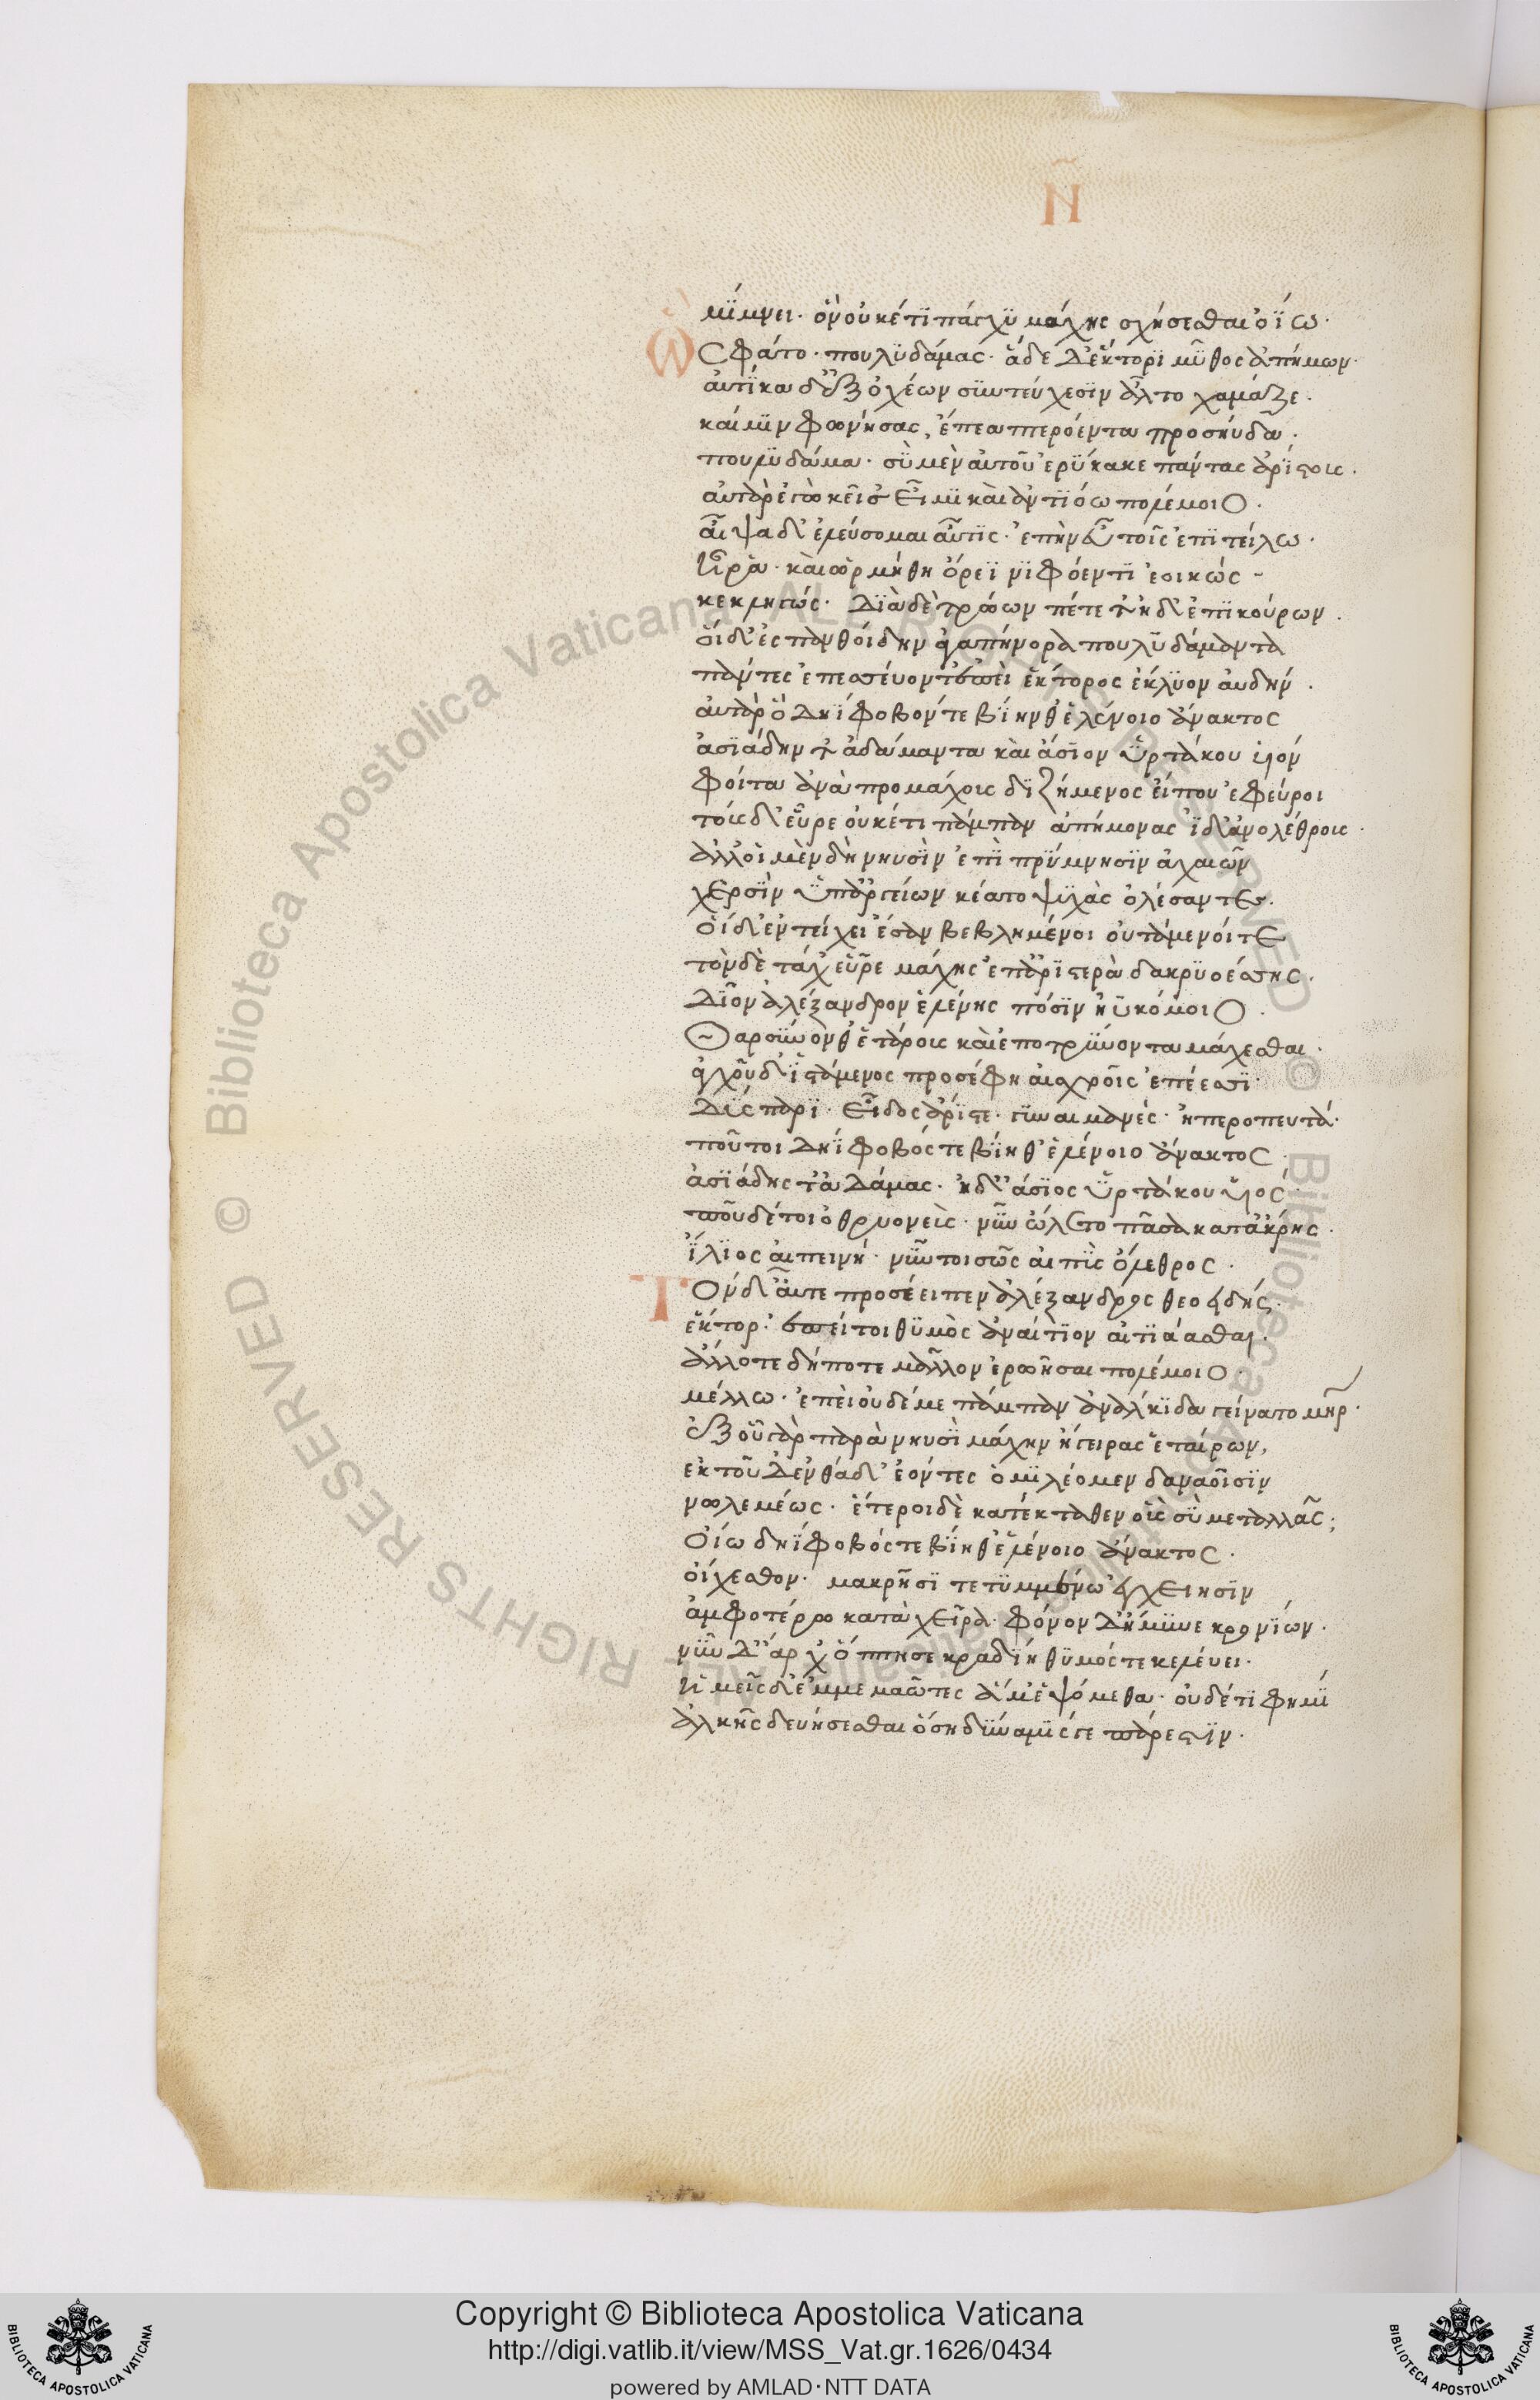 Ν̃
μίμνει· ὃν οὐκέτι πάγχυ μάχης σχήσεσθαι ὀΐω·
Ὣς φάτο· πουλυδάμας· ἅδε δ' ἕκτορι μῦθος ἀπήμων·
αὐτίκα δ' ἐξ ὀχέων σὺν τεύχεσιν ἆλτο χαμᾶζε·
καί μιν φωνήσας, ἔπεα πτερόεντα προσηύδα·
πουλυδάμα· σὺ μὲν αὐτοῦ ἐρύκακε πάντας ἀρίστους·
αὐτὰρ ἐγὼ κεῖσ' εἶμι καὶ ἀντιόω πολέμοιο·
αἶψα δ' ἐλεύσομαι αὖτις· ἐπὴν εὖ τοῖς ἐπιτείλω·
Ἦ ῥα· καὶ ὡρμήθη ὄρεϊ νιφόεντι ἐοικώς
κεκληγώς· διὰ δὲ τρώων πέτετ' ἠδ' ἐπικούρων·
οἱ δ' ἐς πανθοίδην ἀγαπήνορα πουλυδάμαντα
πάντες ἐπεσσεύοντ' ἐπεὶ ἕκτορος ἔκλυον αὐδήν·
αὐτὰρ ὃ δηΐφοβόν τε βίην θ' ἑλένοιο ἄνακτος
ἀσιάδην τ' ἀδάμαντα καὶ ἄσιον ὑρτάκου υἱόν
φοίτα ἀνὰ προμάχους διζήμενος εἴ που ἐφεύροι
τοὺς δ' εὗρε οὐκέτι πάμπαν ἀπήμονας ἰδ' ἀνολέθρους·
ἀλλ' οἱ μὲν δὴ νηυσὶν ἐπὶ πρύμνησιν ἀχαιῶν
χερσὶν ὑπ' ἀργείων κέατο ψυχὰς ὀλέσαντες·
οἱ δ' ἐν τείχει ἔσαν βεβλημένοι οὐτάμενοί τε
τὸν δὲ τάχ' εὗρε μάχης ἐπ' ἀριστερὰ δακρυοέσσης·
δῖον ἀλέξανδρον ἑλένης πόσιν ἠϋκόμοιο·
Θαρσύνονθ' ἑτάρους καὶ ἐποτρύνοντα μάχεσθαι·
ἀγχοῦ δ' ἱστάμενος προσέφη αἰσχροῖς ἐπέεσσι·
Δύσπαρι· εἶδος ἄριστε· γυναιμανές· ἠπεροπευτά·
ποῦ τοι δηΐφοβός τε βίη θ' ἑλένοιο ἄνακτος·
ἀσιάδης τ' ἀδάμας· ἠδ' ἄσιος ὑρτάκου υἱός·
ποῦ δέ τοι ὀθρυονεὺς· νῦν ὤλετο πᾶσα κατάκρης·
ἴλιος αἰπεινή· νῦν τοι σῶς αἰπὺς ὄλεθρος·
Τὸν δ' αὖτε προσέειπεν ἀλέξανδρος θεοειδής·
ἕκτορ· ἐπεί τοι θυμὸς ἀναίτιον αἰτιάασθαι·
ἄλλοτε δή ποτε μᾶλλον ἐρωῆσαι πολέμοιο·
μέλλω· ἐπεὶ οὐδέ με πάμπαν ἀνάλκιδα γείνατο μηρ·
ἐξ οὗ γὰρ παρὰ νηυσὶ μάχην ἤγειρας ἑταίρων,
ἐκ τοῦ δ' ἐνθάδ' ἐόντες ὁμιλέομεν δαναοῖσιν
νωλεμέως· ἕτεροι δὲ κατέκταθεν οὓς σὺ μεταλλᾷς;
Οἴω δηΐφοβός τε βίη θ' ἑλένοιο ἄνακτος·
οἴχεσθον· μακρῇσι τετυμμένω ἐγχείησιν
ἀμφοτέρω κατὰ χεῖρα· φόνον δ' ἤμυνε κρονίων·
νῦν δ' ἄρχ' ὅππη σε κραδίη θυμός τε κελεύει·
Ἡμεῖς δ' ἐμμεμαῶτες ἅμ' ἑψόμεθα· οὐδέ τι φημί
ἀλκῆς δευήσεσθαι ὅση δύναμίς γε πάρεστιν·
Copyright © Biblioteca Apostolica Vaticana
http://digi.vatlib.it/view/MSS_Vat.gr.1626/0434
powered by AMLAD·NTT DATA